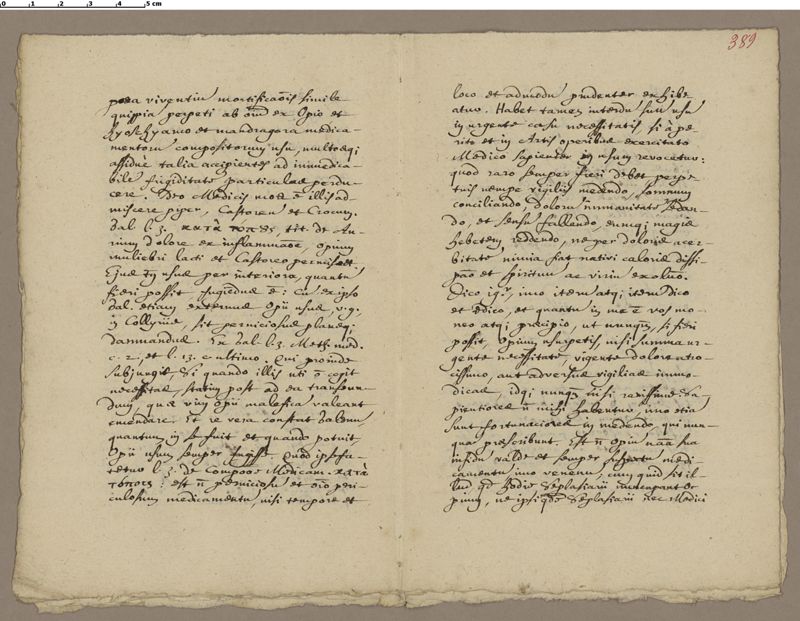 0 1 2 3 4 5 cm
389
viventiu mortificaõis simile
quippia perpeti ab om̃ ex Opio et
Hyoskyamo et mandragora medica-
mentoru compositoruȝ usu, multosqȝ
assidue talia accipientes ad immedica-
bile frigiditate particulas perdu-
cere. Ideo Medicis mos ẽ illis ad-
miscere piper, Castoreu et Crocum.
Gal l. 3. κατὰ τόπȣς, tit. de Au-
rium dolore ex inflammaõe, opium
muliebri lacti et Castoreo permiscet.
Ejus usus per interiora, quantu
fieri possit fugiendus ẽ: Cu ex ipso
Gal. etiam externus Opii usus, v.g.
in Collyriis, sit perniciosus planeqȝ
damnandus. In Gal l. 3. Meth. med.
c. 2, et l. 12. c. ultimo. Qui proinde
subjungit, Si quando illis uti õ cogit
necessitas, statim post ad ea transeun-
dum, quæ vim opii malefica valeant
emendare. Et re vera constat Galenu
quantum in se fuit et quando potuit
Opii usum semper fugisse. Quod ipse fa-
tetur l. 3. de Compos Medicam. κατὰ
τόπους: est n̄ perniciosu et oĩo peri-
culosum medicamentu, nisi tempore et
loco et admodu prudenter exhibe
atur. Habet tamen interdu suu usu
in urgente casu necessitatis, si à pe
rito et in Artis operibus exercitato
Medico sapienter in usum revocetur:
quod raro semper fieri debet perpe
tuis nempe vigiliis medendo, somnum
conciliando, doloru immanitate sedan-
do, et sensu fallendo, eumqȝ magis
hebetem reddendo, ne per doloris acer-
bitate nimia fiat nativi caloris dissi-
paõ et spirituu ac viriu exolutio.
Dico igr, imo iteru atqȝ iteru dico
et edico, et quantu in me ẽ vos mo-
neo atqȝ præcipio, ut nunqȝ, si fieri
possit, Opium usurpetis, nisi summa ur-
gente necessitate, vigente dolore atro-
cissimo, aut adversus vigilias immo-
dicas, idqȝ nunqȝ nisi rarissime: Sa-
pientiores n̄ mihi habentur, imo etia
sunt fortunatiores in medendo, qui nun-
qua præscribunt. Est n̄ opiu naã sua
insidu valde et semper suspectu medi-
camentu imo venenu, cum quid sit il-
lud qd hodie Seplasiarii nuncupant O-
pium, ne ipsi qde Seplasiarii nec Medici